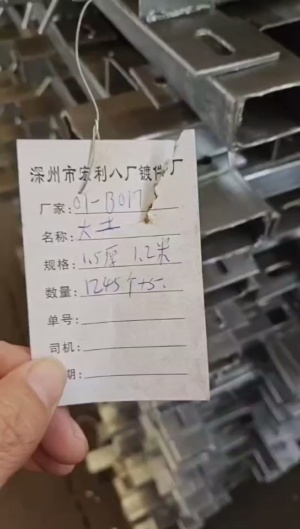 深州市宏利八厂镀件厂
厂家: 01-B017
名称: 大土
规格: 1.5厚 1.2米
数量: 1245个+5.
单号:
司机:
期: